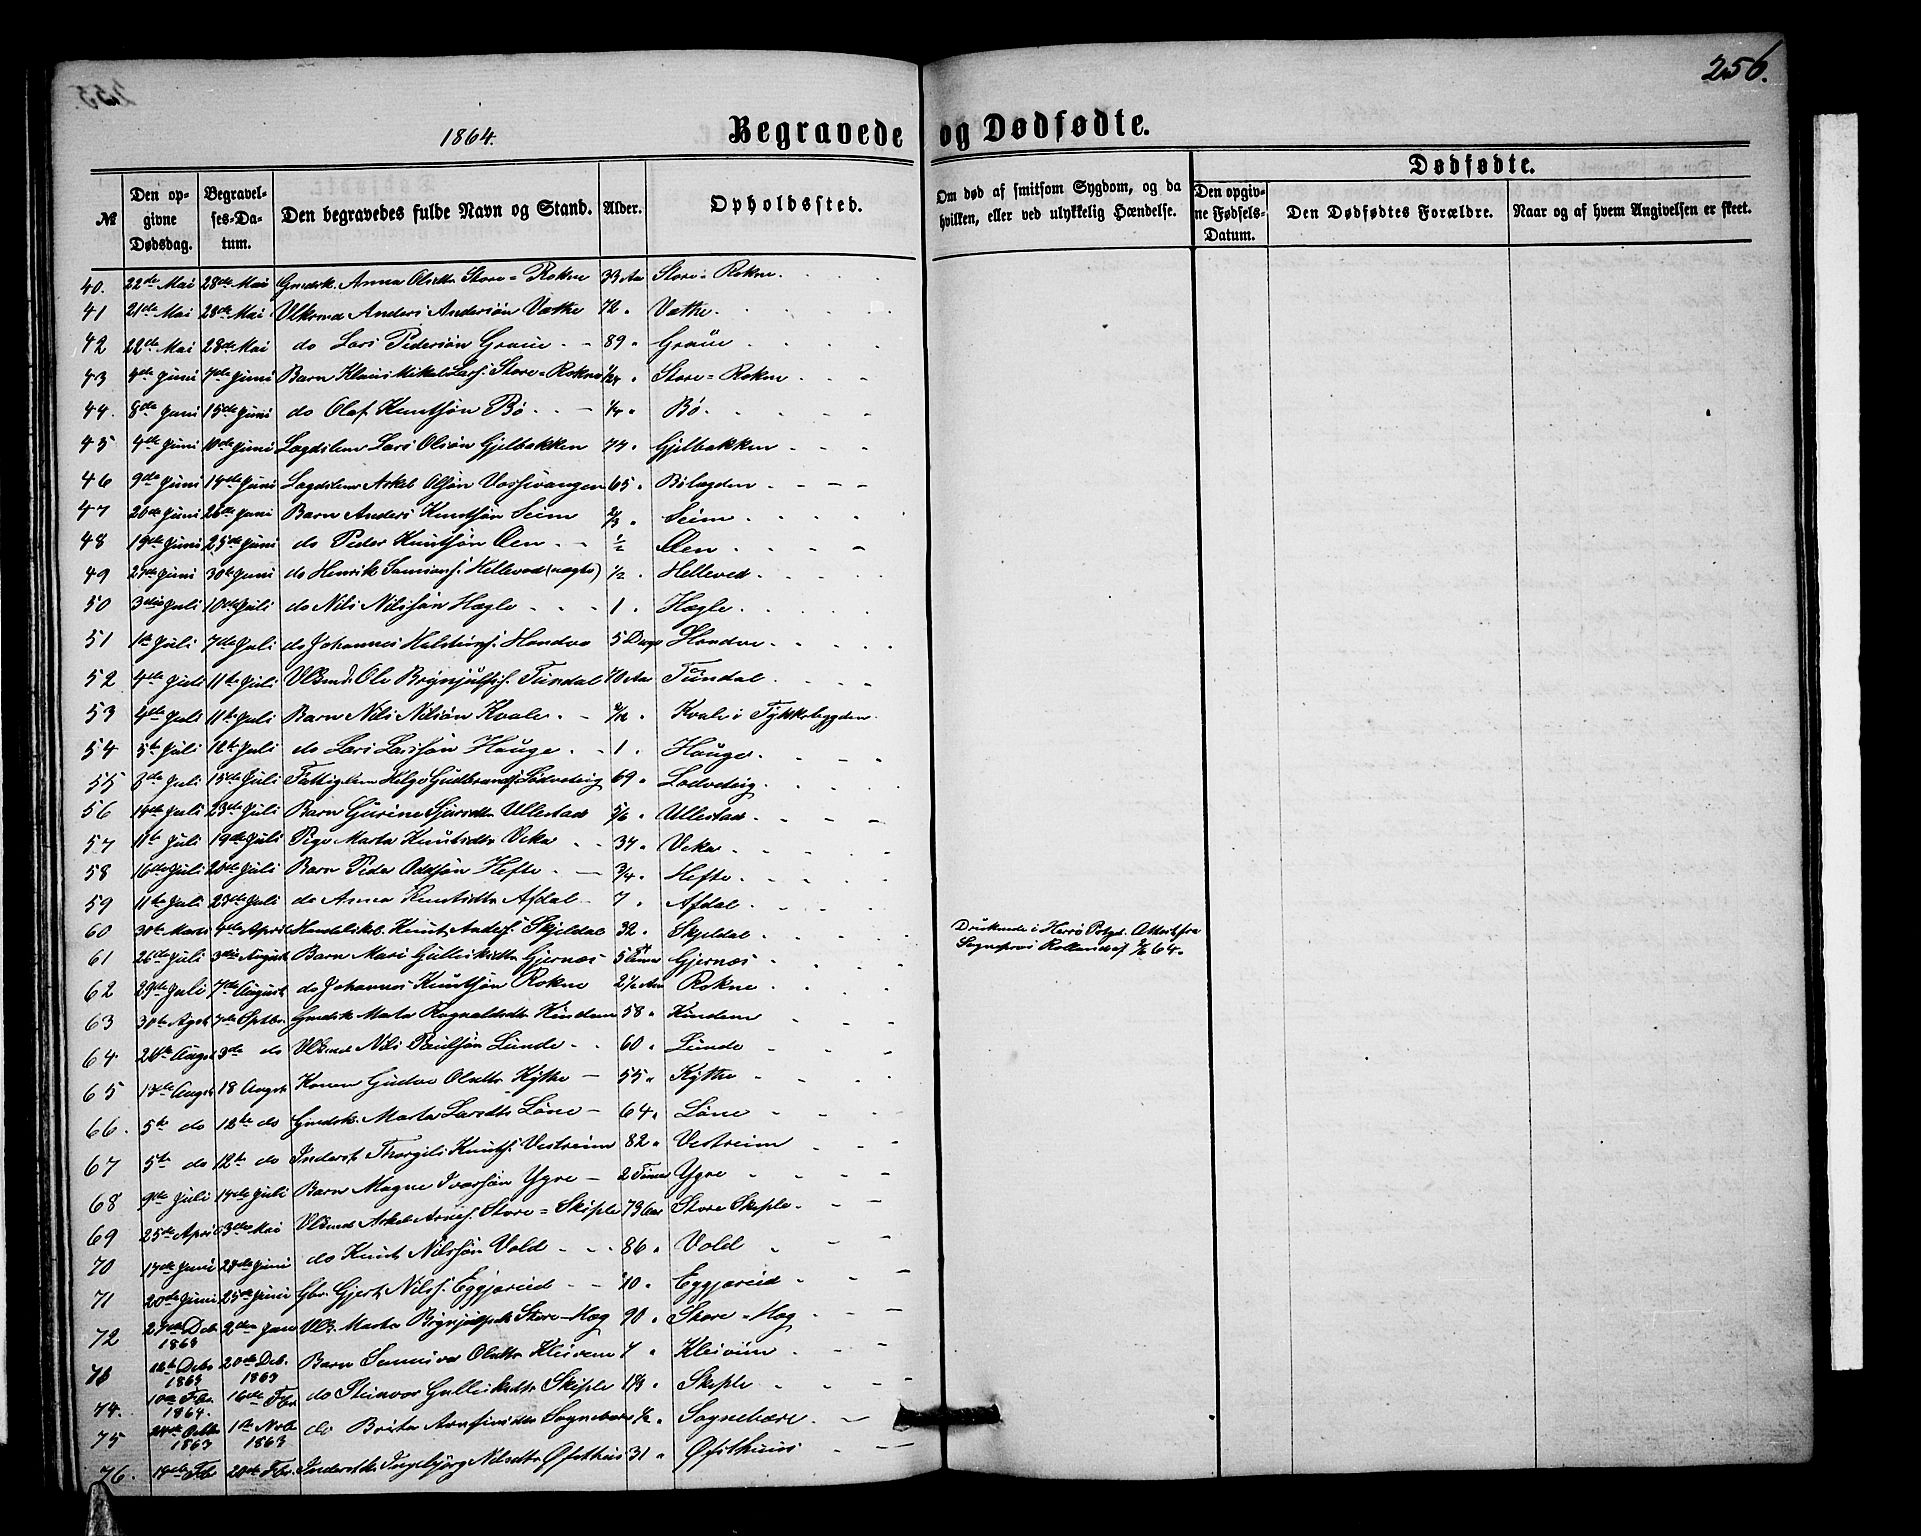 256.
1864.
Begravede og Dødfødte.
№
Den opgivne Dødsdag.
Begravelses-Datum.
Den begravedes fulde Navn og Stand.
Alder.
Opholdssted.
Om død af smitsom Sygdom, og da hvilken, eller ved ulykkelig Hændelse.
Dødfødte.
Den opgivne Fødsels-Datum.
Den Dødfødtes Forældre.
Naar og af hvem Angivelsen er skeet.
40. 22de Mai 28de Mai Gmdsk. Anna Olsdtr Store=Rokne 33 Aar Store=Rokne.
41 21de Mai 28de Mai Vlksmd Anders Andersøn Væthe 72 " Væthe.
42 22de Mai 28de Mai do Lars Pedersøn Graue 89 " Graue
43 4de Juni 7de Juni Barn Klaus Mikal Lars. Store=Rokne 1/24 " Store=Rokne
44. 8de Juni 15de Juni do Olaf Knutsøn Bø 1/4 " Bø.
45 4de Juni 10de Juni Lægdslem Lars Olsøn Gjelbakken 77 " Gjelbakken
46 9de Juni 14de Juni Lægdslem Askel Olsøn Vossevangen 65 " Bølægden
47 20de Juni 26de Juni Barn Anders Knutsøn Seim 2/3 " Seim
48 19de Juni 25de Juni do Peder Knutsøn Øen 1/2 Øen
49 24de Juni 30te Juni do Henrik Samsons. Helleved (uægte) 1/2 " Helleved
50 3die Juli 10de Juli do Nils Nilssøn Hægle 1 " Hægle
51 1te Juli 7de Juli do Johannes Halsteins. Handve 5 Dage Handve
52 4de Juli 11te Juli Vlksmd. Ole Brynjulfs. Fundal 70 Aar Fundal
53 4de Juli 11te Juli Barn Nils Nilsøn Kvale /12 " Kvale i Tykkebygden
54 5te Juli 12te Juli do Lars Larssøn Hauge 1 " Hauge
55 8de Juli 15de Juli Fattiglem Helge Gudbrands. Lødveteig 69 " Lødveteig
56 14de Juli 23de Juli Barn Gurine Sjursdtr Ullestad 5/6 " Ullestad
57 11te Juli 19de Juli Pige Marta Knutsdtr Veka 34 " Veka
58 16de Juli Juli Barn Peder Oddsøn Hefte 3/4 " Hefte
59 11te Juli 23de Juli do Anna Knutsdtr Afdal 7 " Afdal
60 30te Marts 4de April Knut Anders. Skjeldal 32 " Skjeldal Druknede i Herrø Prstgd. Attest fra
Sogneprest Rolland af 64.
61 26de Juli 3die August Barn Mari Gulleiksdtr Gjernæs 5 Timer Gjernæs
62 29de Juli 7de August do Johannes Knutsøn Rokne 2 1/2 Aar Rokne
63 31te Agst 7de Sptbr. Gmdsk Marta Rognaldsdtr Kindem 58 " Kindem
64. Augst 3de do Vlksmd Nils Paulsøn Lunde 60 " Lunde
65 14de Augst 18 Augst. Konen Gudve Olsdtr Kythe 55 " Kythe
66. 5te do 12te do Gmdsk. Marta Larsdtr Løne 64 " Løne
67 5te do 12te do Inderst Thorgils Knuts. Vestreim 82 " Vestreim
68 9de Juli 14de Juli Barn Magne Ivarsøn Ygre 2 Timer Ygre
69 25de April 3de Mai Vlksmd Askel Arnes. Store=Skiple 73 Aar Store Skiple
70 17de Juni 24de Juni do Knut Nilssøn Vold 86 " Vold
71 20de Juni 25de Juni Gbr. Gjert Nils. Eggjareid 10 " Eggjareid
72 27de Debr 1863 2den Jan Marta Brynjulfsdtr Store-Møg 90 " Store=Møg
73 12te Debr 1863 20de Deb. 1863 Barn Synneva Olsdtr Kleivem 7 " Kleivem
74. 10de Fbr 1864. 16de Fbr do Steinvor Gulleiksdtr Skiple " Skiple
75 24de Octbr 1863 1te Nvb 1863 do Brita Arnfinsdtr Sognebære 1/2 " Sognebære
76. 14de Fbr 20de Fbr. Inderstk. Ingebjørg Nilsdtr Øfsthus 31 " Øfsthus